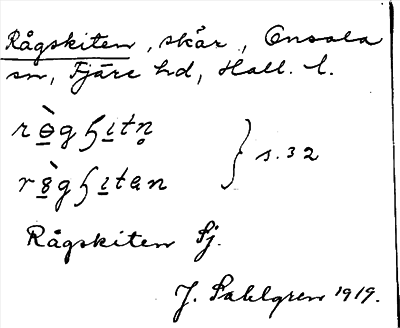 Rågskiten, skär, Onsala
sn, Fjäre hd, Hall. l.
rɵ̀gɧitn̥
} s. 32
rɵ̀gɧitan
Rågskiten Sj.
J. Sahlgren 1919.